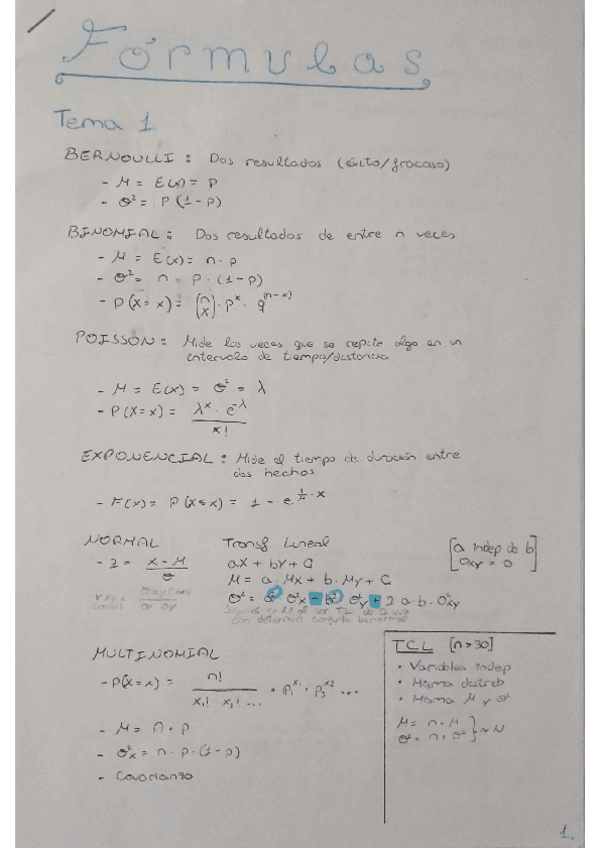 Fórmulas
Tema 1
BERNOULLI: Dos resultados (éxito/fracaso)
- M = E(x) = P
- σ² = P(1-P)
BINOMIAL: Dos resultados de entre n veces
- M = E(x) = n · p
- σ² = n · p · (1-p)
- P(X=x) = (n x) · p^x · q^(n-x)
POISSON: Mide las veces que se repite algo en un
intervalo de tiempo/distancia
- M = E(x) = σ² = λ
- P(X=x) = λ^x · e^-λ / x!
EXPONENCIAL: Mide el tiempo de duración entre
dos hechos
- F(x) = P(X≤x) = 1 - e^(1/λ · x)
NORMAL
- z = x-M / σ
Transf Lineal
ax + by + C
M = a · Mx + b · My + C
σ² = a² σ²x + b² σ²y + 2 a · b · σxy
[a indep de b]
[σxy = 0]
MULTINOMIAL
- P(X=x) = n! / x1! x2! ... · P1^x1 · P2^x2 ...
- M = n · p
- σ²x = n · p · (1-p)
- Covarianza
TCL [n>30]
• Variables indep
• Misma distrib
• Misma M y σ²
M = n · M
σ² = n · σ² } ~ N
1.